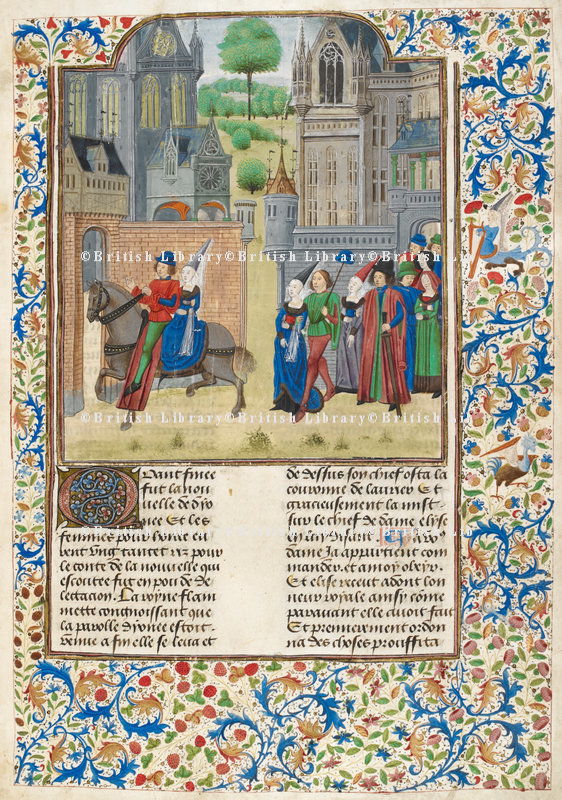 ©British Library©British Library©British Library©British Li
©British Library©British Library©British Library©British Li
Quant finee
fut la nou
uelle de dyo
nee Et les
femmes pour honte eu
rent ung tantet ris pour
le conte de la nouuelle qui
escoutee fut en pou de de
lectacion. La royne flam
mette congnoissant que
la parolle dyonee estoit
venue a fin elle se leua et
de dessus son chief osta la
couronne de laurier Et
gracieusement la mist
sur le chief de dame elyse
en luy disant
dame Ja appartient com
mander. et a moy obeyr.
Et elise receut adont lon
neur royale ainsy come
parauant elle auoit fait
Et premierement ordon
na des choses prouffita